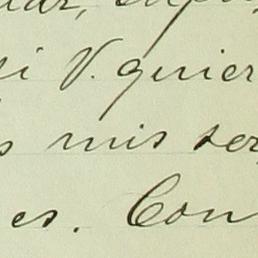 si V. quier
s mis ser
es. Con